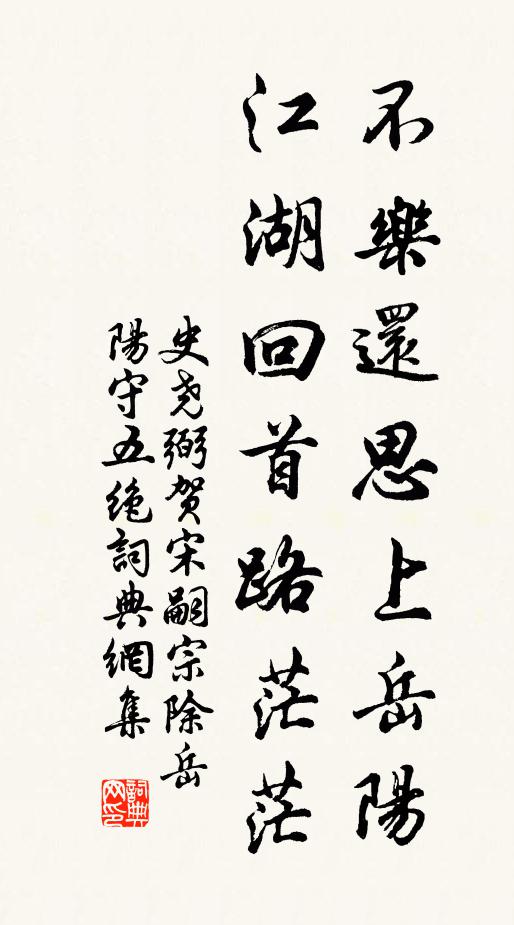 不樂還思上岳陽
江湖回首路茫茫
史尧弼贺宋嗣宗除岳
陽守五绝詞典網集
詞典
网印